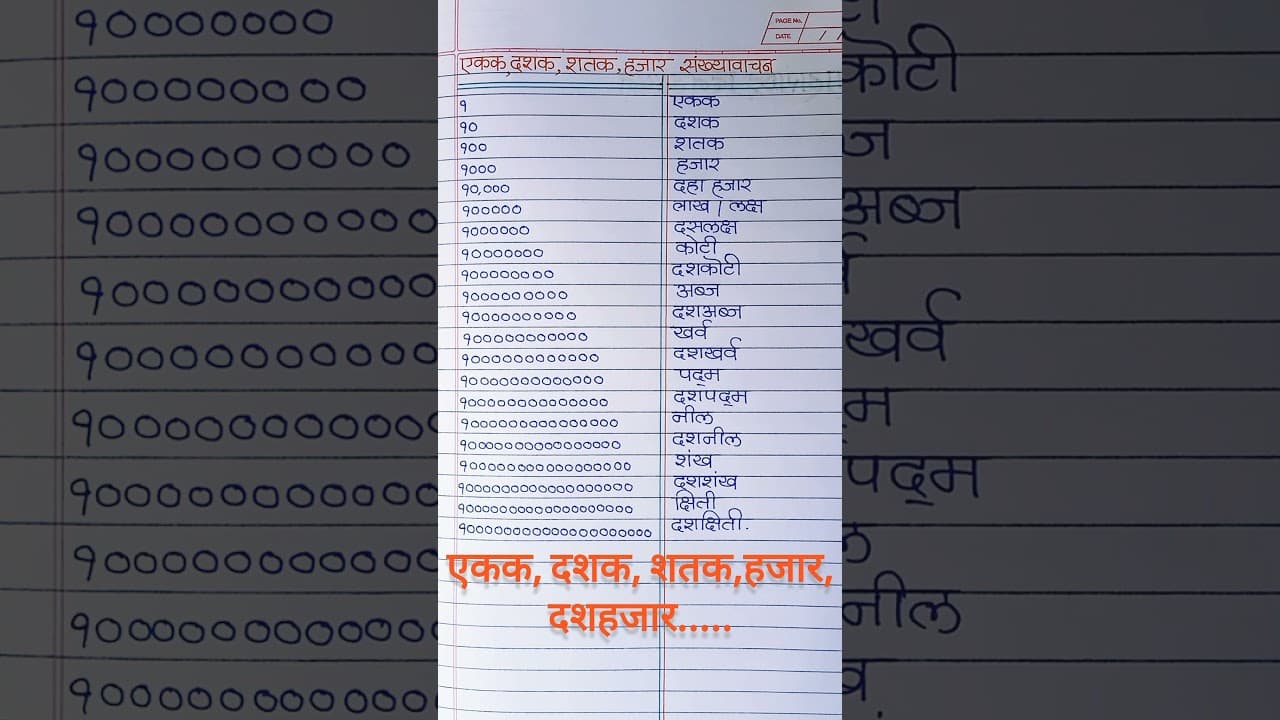 PAGE No.
DATE / /
एकक,दशक, शतक,हजार संख्यावाचन
१ एकक
१० दशक
१०० शतक
१००० हजार
१०,००० दहा हजार
१००००० लाख / लक्ष
१०००००० दसलक्ष
१००००००० कोटी
१०००००००० दशकोटी
१००००००००० अब्ज
१०००००००००० दशअब्ज
१००००००००००० खर्व
१०००००००००००० दशखर्व
१००००००००००००० पद्म
१०००००००००००००० दशपद्म
१००००००००००००००० नील
१०००००००००००००००० दशनील
१००००००००००००००००० शंख
१०००००००००००००००००० दशशंख
१००००००००००००००००००० क्षिती
१०००००००००००००००००००० दशक्षिती.
एकक, दशक, शतक,हजार,
दशहजार.....